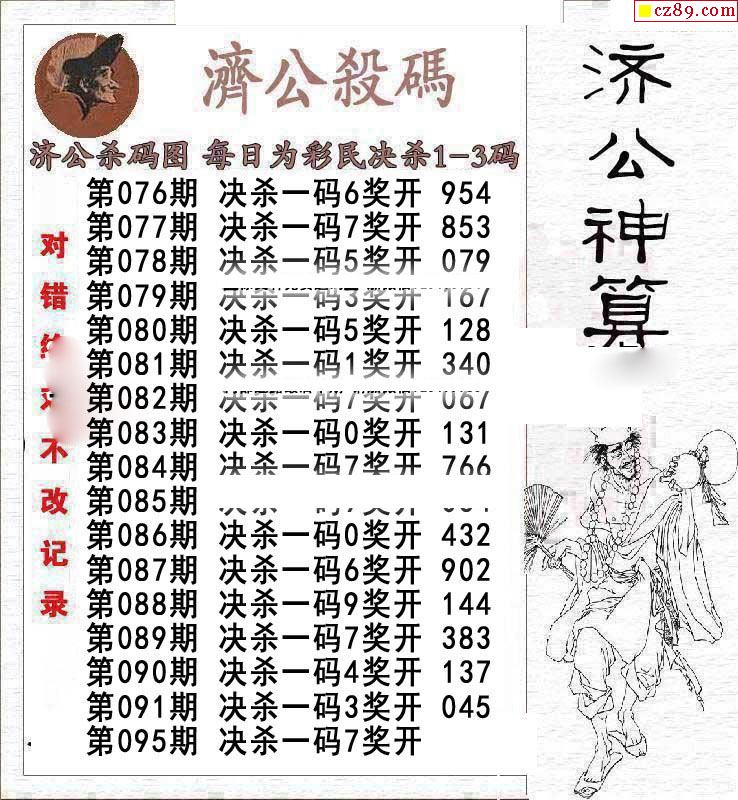 cz89.com
濟公殺碼
济公杀码图 每日为彩民决杀1-3码
第076期 决杀一码6奖开 954
第077期 决杀一码7奖开 853
第078期 决杀一码5奖开 079
第079期 决杀一码3奖开 167
第080期 决杀一码5奖开 128
第081期 决杀一码1奖开 340
第082期 决杀一码7奖开 067
第083期 决杀一码0奖开 131
第084期 决杀一码7奖开 766
第085期
第086期 决杀一码0奖开 432
第087期 决杀一码6奖开 902
第088期 决杀一码9奖开 144
第089期 决杀一码7奖开 383
第090期 决杀一码4奖开 137
第091期 决杀一码3奖开 045
第095期 决杀一码7奖开
对错
不改记录
济公神算